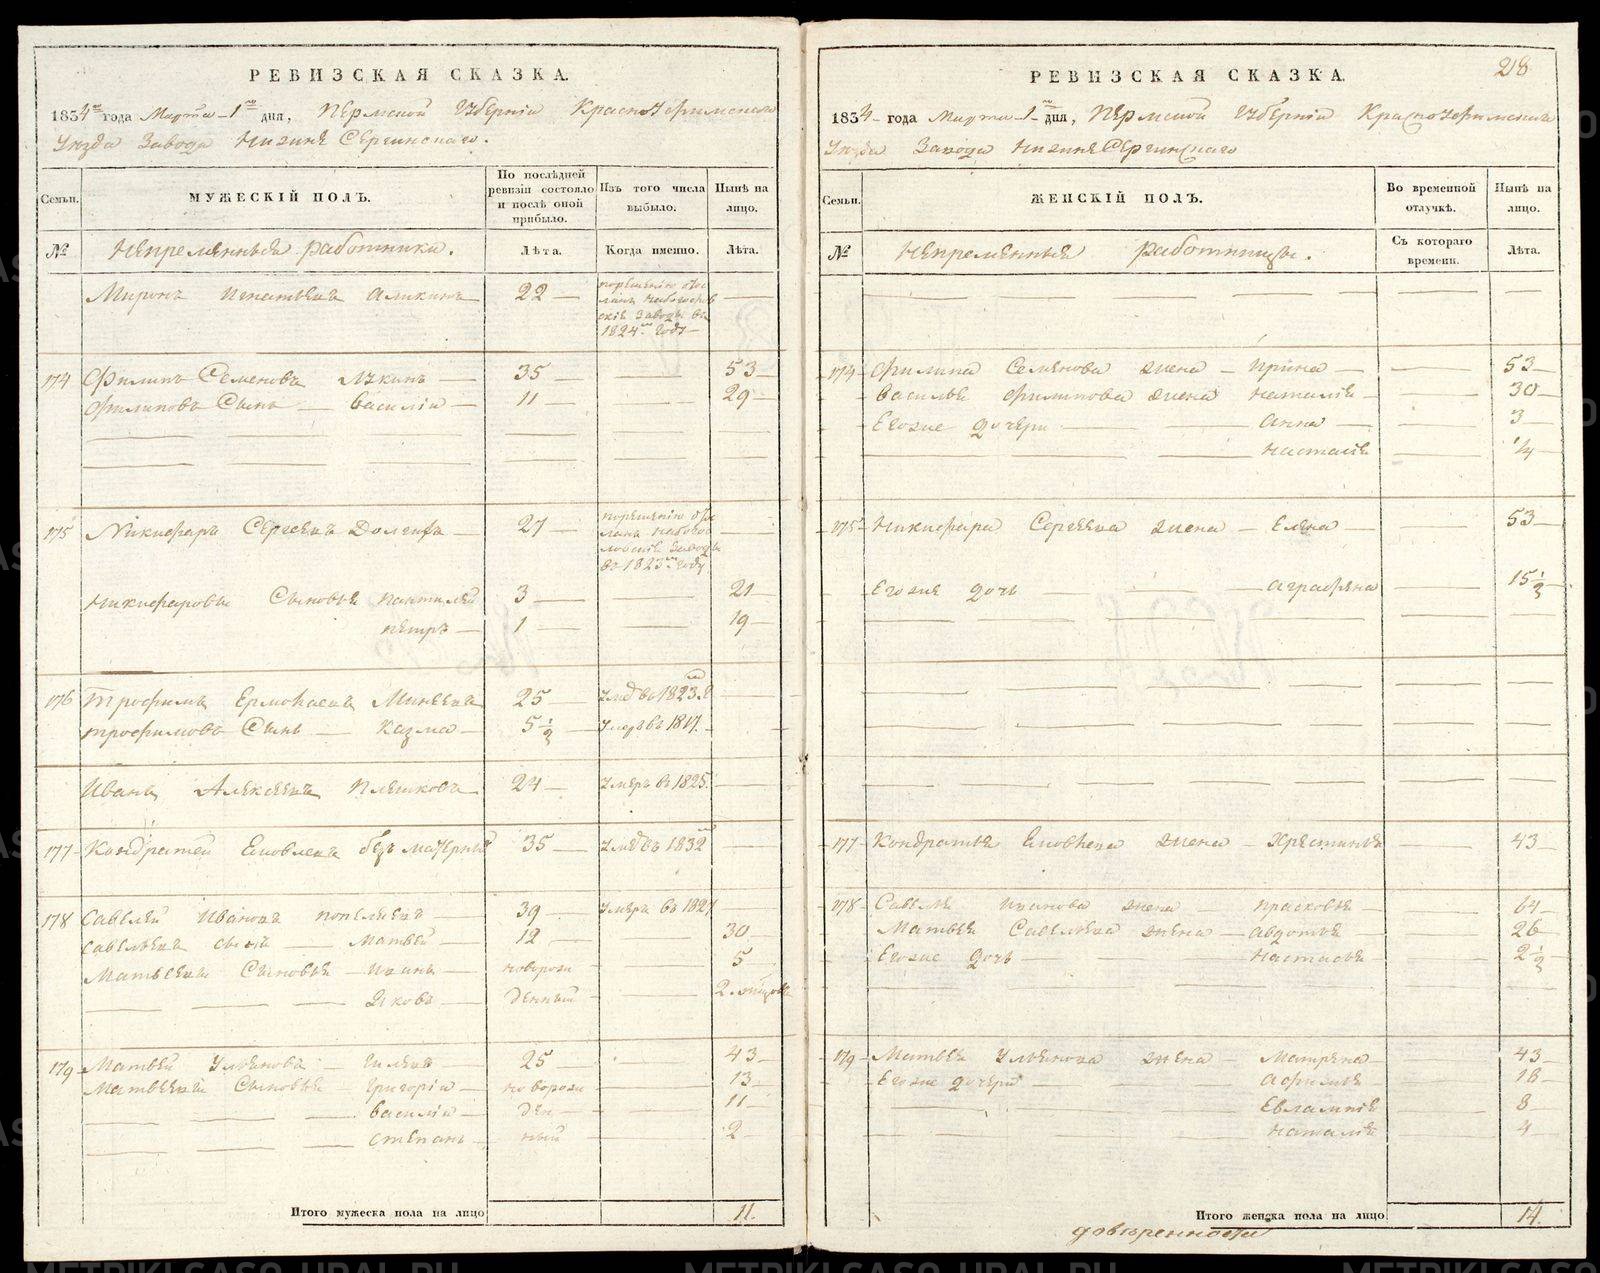 РЕВИЗСКАЯ СКАЗКА.
1834го года Марта 1го дня, Пермской Губерніи Красноуфимскаго
Уезда Завода Нижне Сергинскаго.
Семьи.
МУЖЕСКІЙ ПОЛЪ.
По послѣдней ревизіи состояло и послѣ оной прибыло.
Изъ того числа выбыло.
Нынѣ на лицо.
№
Непременные работники.
Лѣта.
Когда именно.
Лѣта.
Миронъ Игнатьевъ Аликинъ 22 порешению отосланъ въ Богословскіе Заводы въ 1824м году
174 Филипъ Семеновъ Лѣкинъ 35 53
Филиповъ Сынъ Василій 11 29
175 Никифоръ Сергеевъ 27 порешению отосланъ въ Богословскіе Заводы въ 1823м году
Никифоровы Сыновья Пантилей 3 21
Петръ 1 19
176 Трофимъ Ермолаевъ Минеевъ 25 Умеръ въ 1823м
Трофимовъ Сынъ Казма 5 1/2 Умеръ въ 1817.
Иванъ Алексеевъ Плешковъ 24 Умеръ въ 1825.
177 Кондратей Яковлевъ 35 Умеръ въ 1832м
178 Савелей Ивановъ Попелыевъ 39 Умеръ въ 1827
Савельевъ сынъ Матвей 12 30
Матвеевы Сыновья Иванъ новорож 5
Яковъ денный 2 месецовъ
179 Матвей Ульяновъ 25 43
Матвеевы Сыновья Григорій новорож 13
Василій ден 11
Степанъ ный 2
Итого мужеска пола на лицо 11.
28
РЕВИЗСКАЯ СКАЗКА.
1834 года Марта 1го дня, Пермской Губерніи Красноуфимскаго
Уезда Завода Нижне Сергинскаго
Семьи.
ЖЕНСКІЙ ПОЛЪ.
Во временной отлучкѣ.
Нынѣ на лицо.
№
Непременные работницы.
Съ котораго времени.
Лѣта.
174 Филипа Семенова жена Ирина 53
Василья Филипова жена Наталия 30
Егоже дочери Анна 3
Настасия 1/4
175 Никифора Сергеева жена Елена 53
Егоже дочь Аграфена 15 1/2
177 Кондратья Яковлева жена Хрестинья 43
178 Савелья Иванова жена Прасковья 64
Матвея Савельева жена Авдотья 26
Егоже дочь Настасья 2 1/2
179 Матвея Ульянова жена Матрена 43
Егоже дочери Афимья 18
Евлампия 8
Наталия 4
Итого женска пола на лицо 14.
довѣренности
METRIKI.GASO-URAL.RU
METRIKI.GASO-URAL.RU